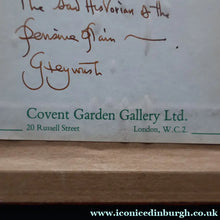 The sad Historian of the
Pensive Plain —
Greywash
Covent Garden Gallery Ltd.
20 Russell Street London, W.C.2.
www.iconicedinburgh.co.uk